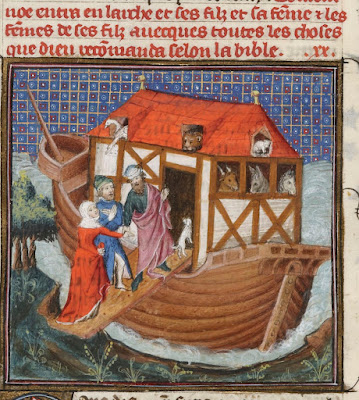 noe entra en larche et ses filz et sa femme et les
femmes de ses filz avecques toutes les choses
que dieu recommanda selon la bible. xx.